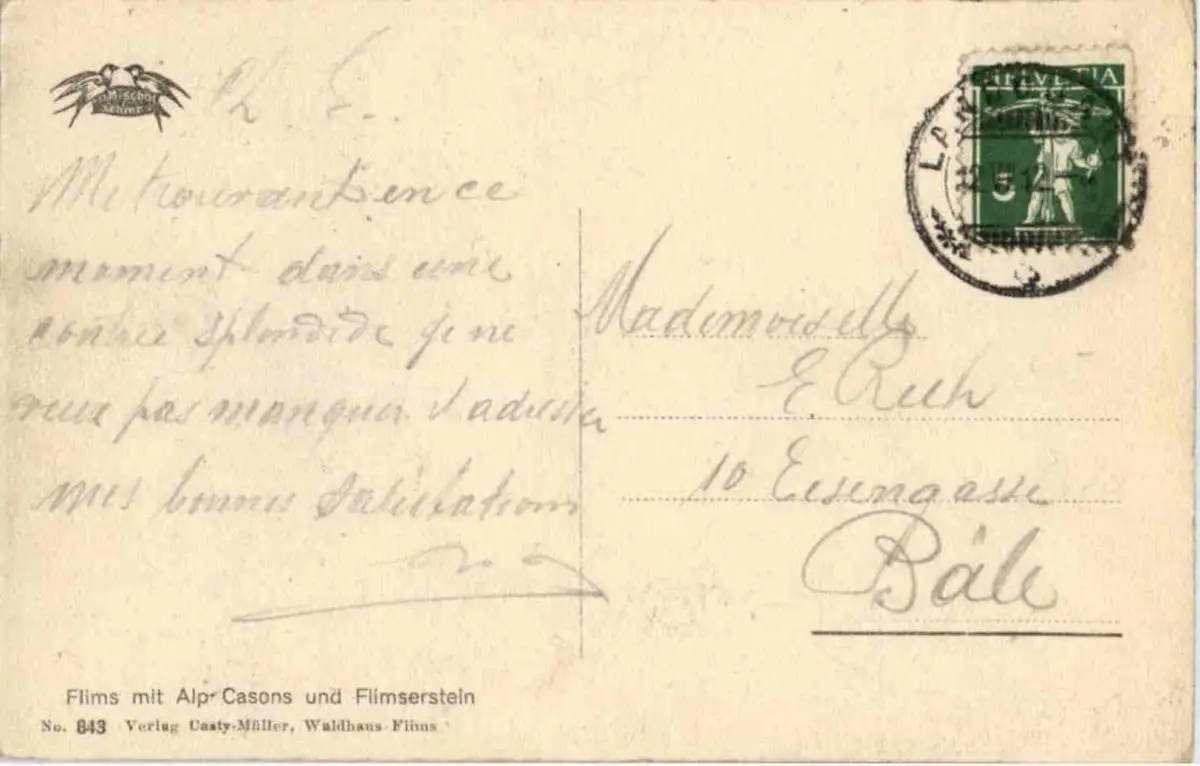 Ch. E.
Me trouvant en ce
moment dans une
contrée splendide je ne
veux pas manquer d'adresser
mes bonnes salutations
HELVETIA
5
12 VIII 12
Mademoiselle
E. Rech
10 Eisengasse
Bâle
Flims mit Alp Casons und Flimserstein
No. 643 Verlag Casty-Müller, Waldhaus-Flims